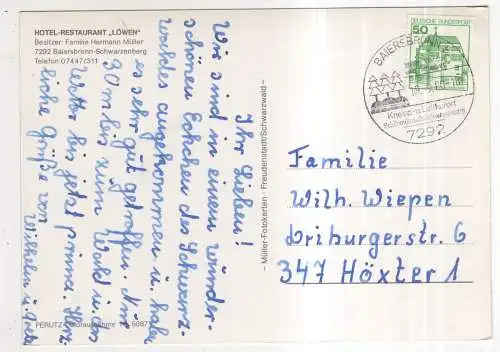 HOTEL-RESTAURANT „LÖWEN"
Besitzer: Familie Hermann Müller
7292 Baiersbronn-Schwarzenberg
Telefon 07447/311
Ihr Lieben!
Wir sind in einem wunder-
schönen Eckchen des Schwarz-
waldes angekommen u. haben
es sehr gut getroffen. Nur
30 m bis zum Wald u. das
Wetter bis jetzt prima. Herz-
liche Grüße von
Wilhelm u. Grete
PERUTZ
50871
– Müller-Fotokarten · Freudenstadt/Schwarzwald –
BAIERSBRONN
Kneipp- u. Luftkurort
7292
DEUTSCHE BUNDESPOST
50
Familie
Wilh. Wiepen
Driburgerstr. 6
347 Höxter 1